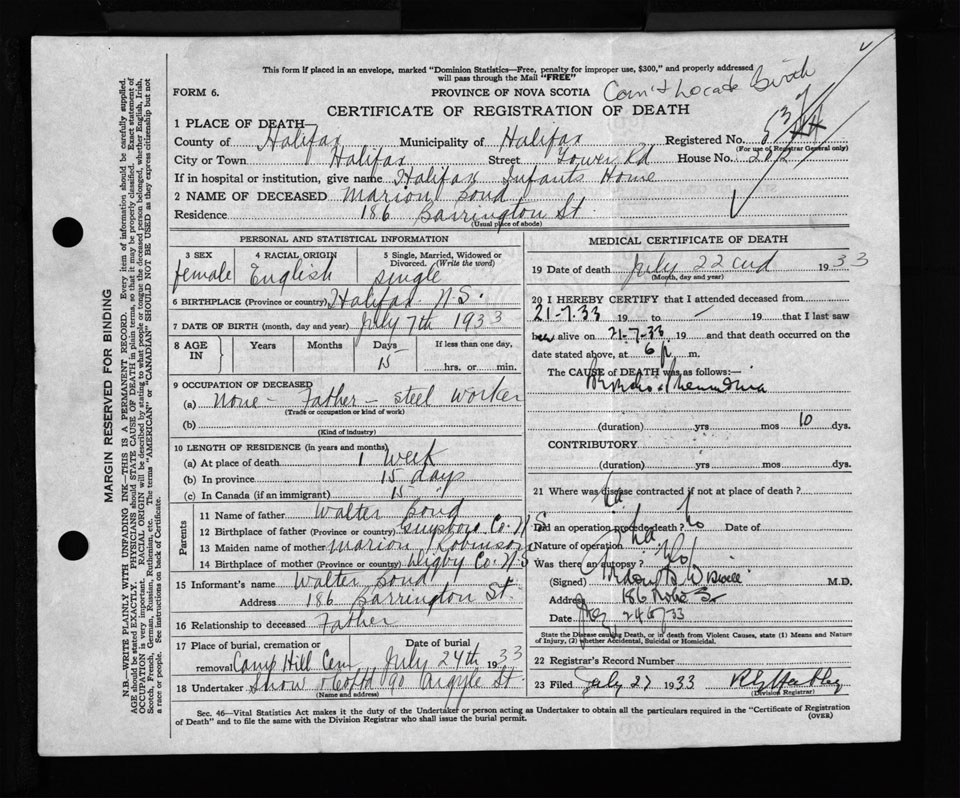 This form if placed in an envelope, marked "Dominion Statistics—Free, penalty for improper use, $300," and properly addressed
will pass through the Mail "FREE"
FORM 6.
PROVINCE OF NOVA SCOTIA
Can't Locate Birth
CERTIFICATE OF REGISTRATION OF DEATH
1 PLACE OF DEATH
County of Halifax Municipality of Halifax Registered No.
(For use of Registrar General only)
City or Town Halifax Street Tower Rd House No.
If in hospital or institution, give name Halifax Infants Home
2 NAME OF DECEASED Marion Bond
Residence 186 Barrington St.
(Usual place of abode)
PERSONAL AND STATISTICAL INFORMATION
3 SEX 4 RACIAL ORIGIN 5 Single, Married, Widowed or Divorced. (Write the word)
female English single
6 BIRTHPLACE (Province or country) Halifax N.S.
7 DATE OF BIRTH (month, day and year) July 7th 1933
8 AGE IN Years Months Days If less than one day,
15 hrs. or min.
9 OCCUPATION OF DECEASED
(a) None - Father - steel worker
(Trade or occupation or kind of work)
(b)
(Kind of industry)
10 LENGTH OF RESIDENCE (in years and months)
(a) At place of death 1 week
(b) In province 15 days
(c) In Canada (if an immigrant) 15 "
Parents
11 Name of father Walter Bond
12 Birthplace of father (Province or country) Guysboro Co. N.S
13 Maiden name of mother Marion Robinson
14 Birthplace of mother (Province or country) Digby Co. N.S
15 Informant's name Walter Bond
Address 186 Barrington St.
16 Relationship to deceased Father
17 Place of burial, cremation or Date of burial
removal Camp Hill Cem July 24th 1933
18 Undertaker Snow & Co Ltd 90 Argyle St.
(Name and address)
MEDICAL CERTIFICATE OF DEATH
19 Date of death July 22nd 1933
(Month, day and year)
20 I HEREBY CERTIFY that I attended deceased from
21-7-33 19 to - 19 that I last saw
her alive on 21-7-33 19 and that death occurred on the
date stated above, at 6 p. m.
The CAUSE OF DEATH was as follows:—
Broncho Pneumonia
(duration) yrs mos 10 dys.
CONTRIBUTORY
(duration) yrs mos dys.
21 Where was disease contracted if not at place of death?
Did an operation precede death? No Date of
Nature of operation
Was there an autopsy? No
(Signed) M.D.
Address 186
Date July 24 33
State the Disease causing Death, or in death from Violent Causes, state (1) Means and Nature
of Injury, (2) whether Accidental, Suicidal or Homicidal.
22 Registrar's Record Number
23 Filed July 27 1933
(Division Registrar)
Sec. 46—Vital Statistics Act makes it the duty of the Undertaker or person acting as Undertaker to obtain all the particulars required in the "Certificate of Registration
of Death" and to file the same with the Division Registrar who shall issue the burial permit.
(OVER)
MARGIN RESERVED FOR BINDING
N.B.—WRITE PLAINLY WITH UNFADING INK—THIS IS A PERMANENT RECORD. Every item of information should be carefully supplied.
AGE should be stated EXACTLY. PHYSICIANS should STATE CAUSE OF DEATH in plain terms, so that it may be properly classified. Exact statement of
OCCUPATION is very important. RACIAL ORIGIN will be described by stating to what people or tongue the deceased person belonged, whether English, Irish,
Scotch, French, German, Russian, Ruthenian, etc. The terms "AMERICAN" or "CANADIAN" SHOULD NOT BE USED as they express citizenship but not
a race or people. See instructions on back of Certificate.